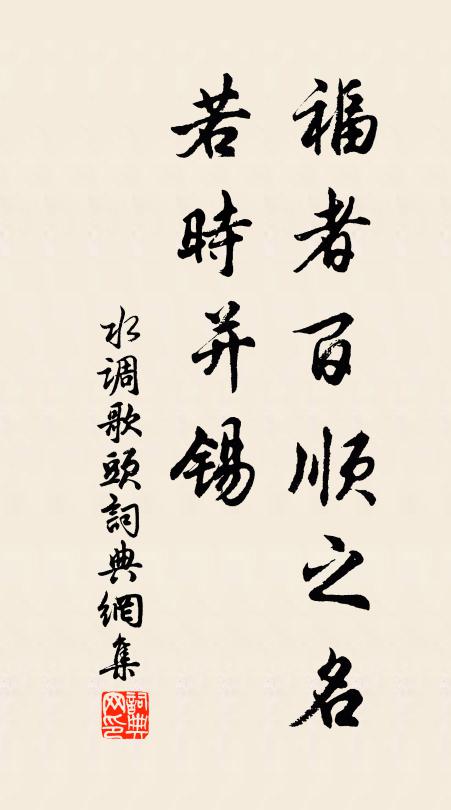 福者百順之名
若時并錫
水调歌頭詞典網集
詞典
网印